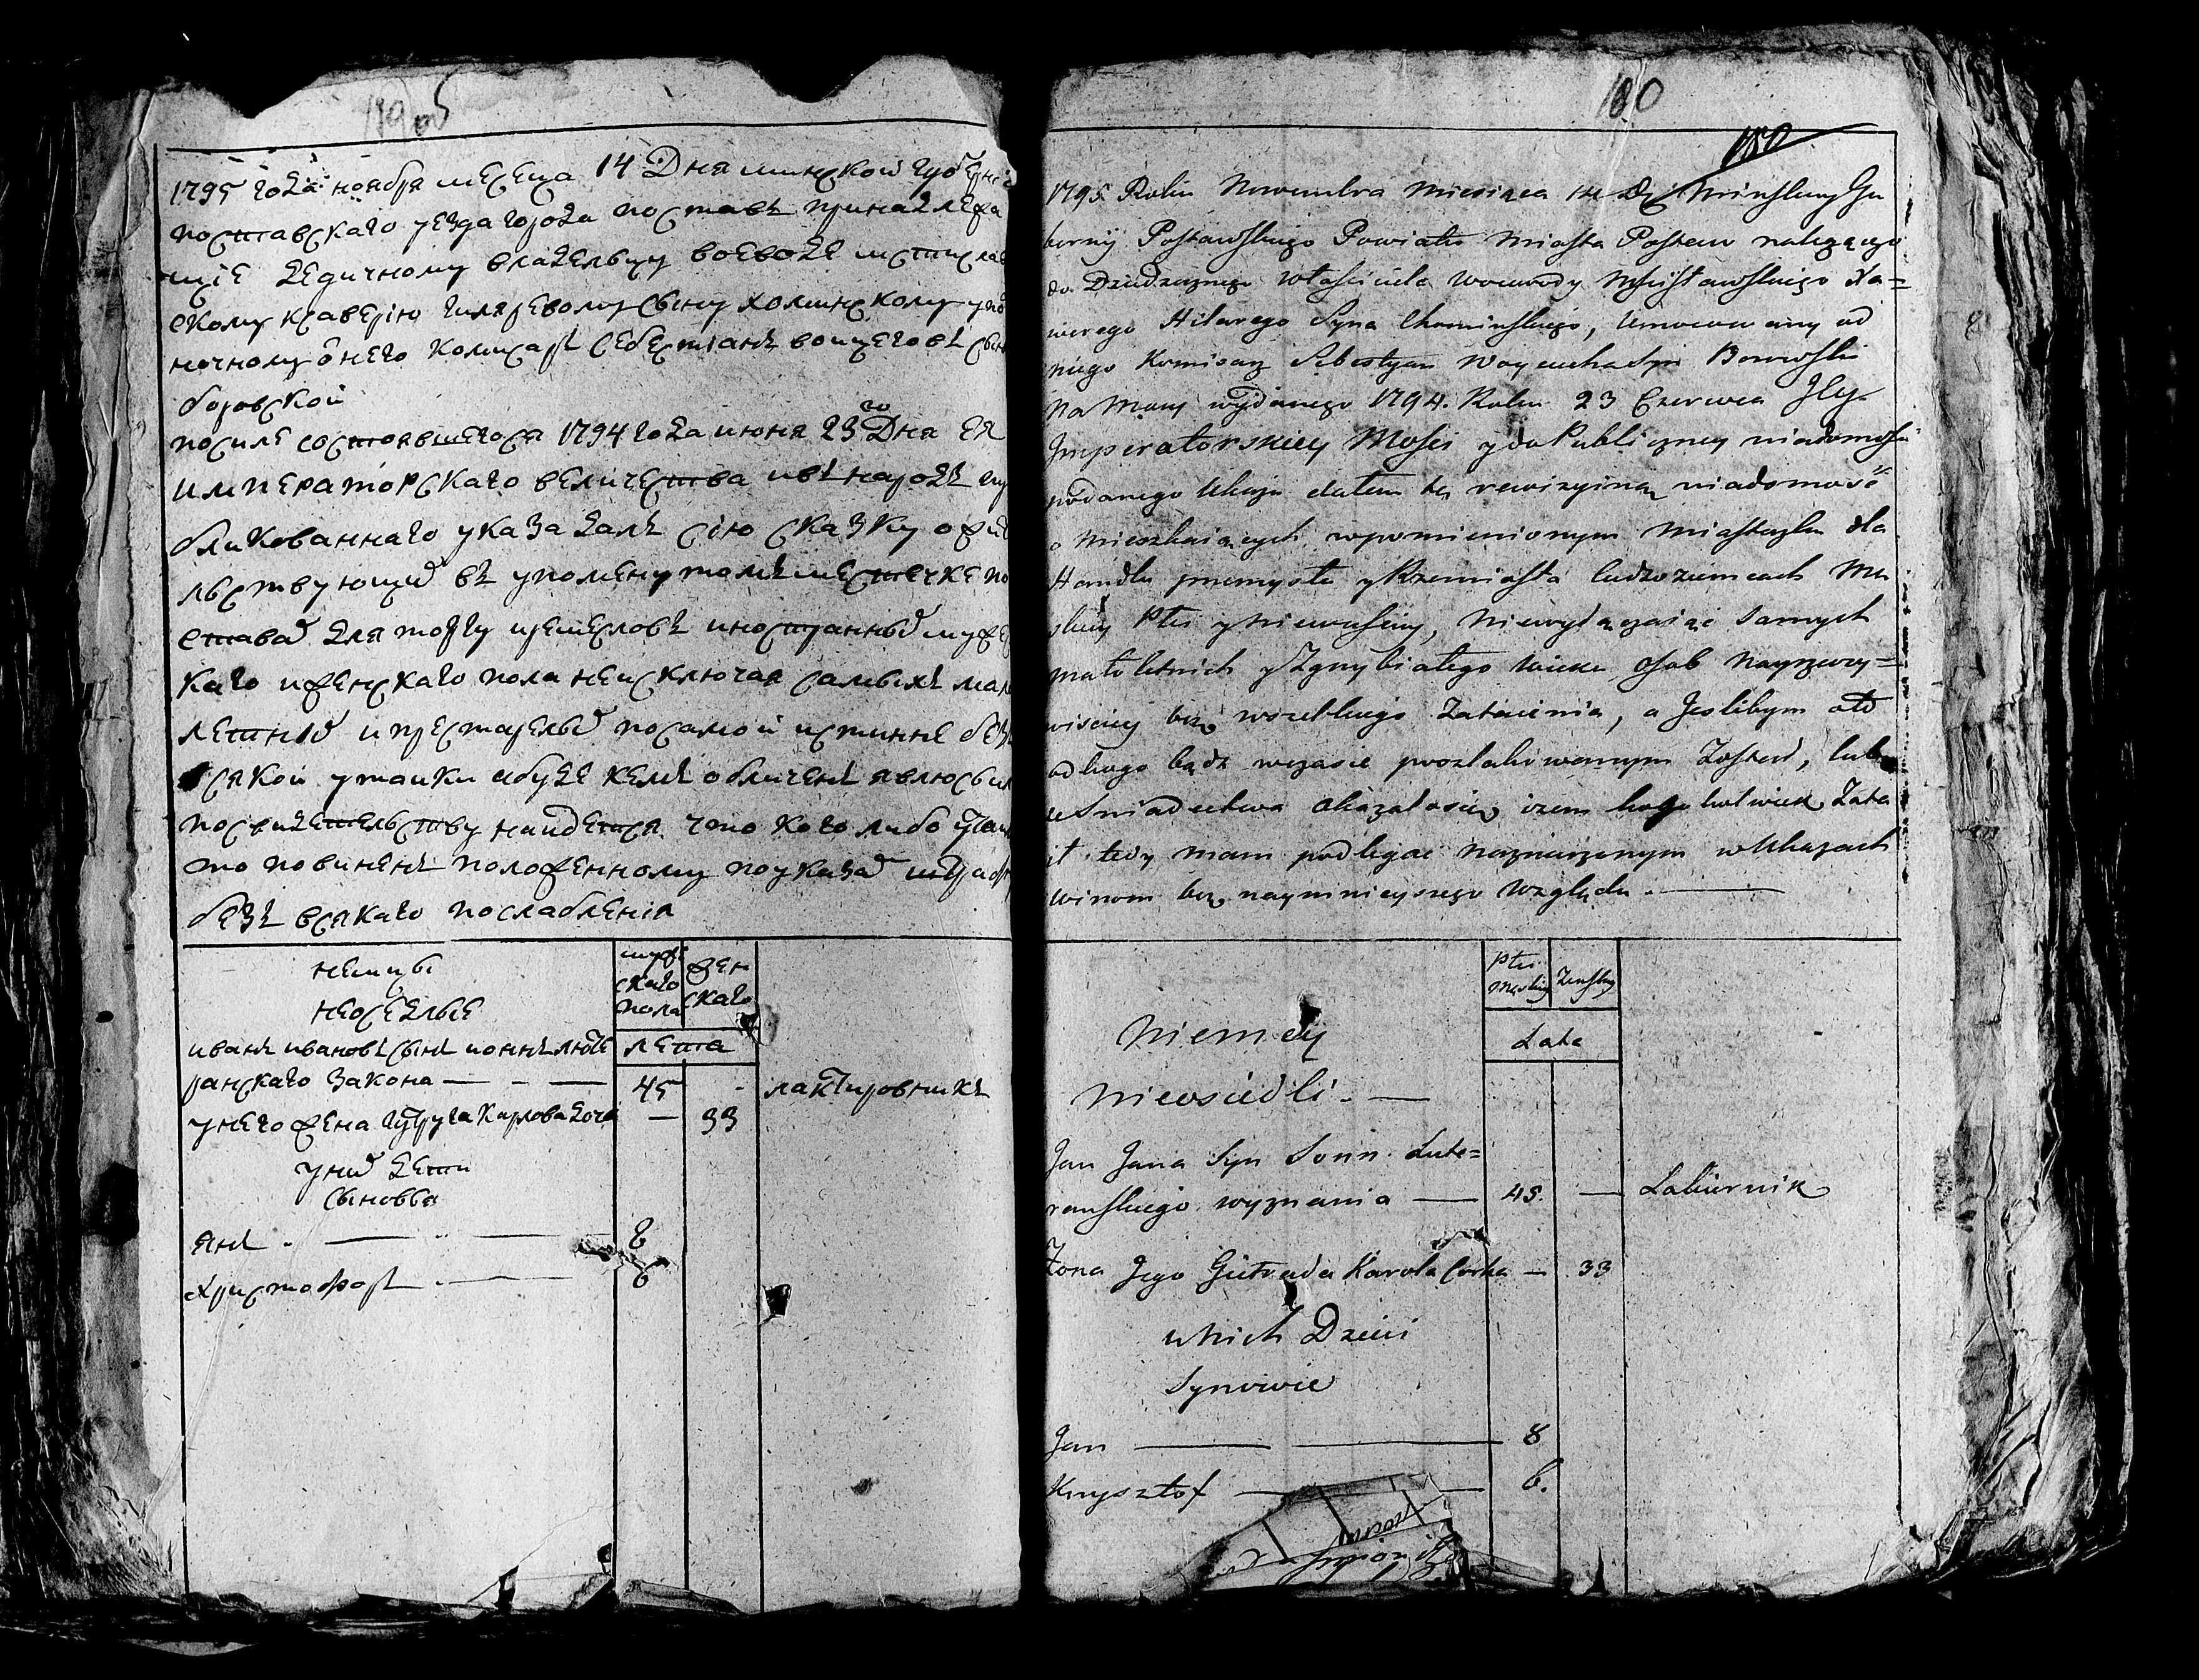 1795 года ноября месеца 14 Дня минской губерни
поставскаго уезда города поставъ принадлежа
щіе дедичному владельцу воеводе мстислав
скому ксаверію гиляревому сыну хоминскому упо
мочному онего комисаръ себестіанъ воицеговъ сын
боровской
посиле состоявшегося 1794 года июня 23го Дня ея
императорскаго величества ивъ народъ пу
бликованнаго указа далъ сію сказку о жит
льствующих въ упоменутомъ местечке по
ставах для торгу иремесловъ иностранных мужес
каго иженскаго пола неисключая самыхъ мало
летних ипрестарелых посамои истинне безъ
всякои утаики абуде кемъ обличенъ явлюсь или
посвидетельству наидется что кого либо утаил
то повиненъ положенному поуказах штраф
безъ всякаго послабленія
немцы
неоседлые
мужескаго пола
женскаго
лета
иванъ ивановъ сынъ ионнъ люте
ранскаго закона — 45 - лактировникъ
унего жена гутруга карлова доча — 33
уних дети
сыновья
янъ — 8
христофоръ — 6
180
180
1795. Roku Nowembra miesiąca 14 D. Minskiey Gu
bernij Postawskiego Powiatu Miasta Postaw należącego
do Dziedzicznego właściciela woiewody Mścisławskiego Xa=
werego Hilarego Syna Chominskiego, umocowany od
niego Komisarz Sebestyan Woyciecha Syn Borowski
Na Mocy wydanego 1794. Roku 23 Czerwca Jey
Imperatorskiey Mości y do Publiczney wiadomości
podanego Ukazu dałem tę rewizyiną wiadomość
o mieszkaiących wpomienionym Miasteczku dla
Handlu przemysłu y Rzemiosła cudzoziemcach Mę
skiey Płci y niewieściey, niewyłączaiąc samych
małoletnich y Zgrzybiałego wieku osob nayrzeczy=
wiściey bez wszelkiego Zataienia, a Jeslibym
od kogo bądz wczasie przekonanym Został, lub
ze Swiadectwa okazałosię iżem kogo kolwiek Zata
ił tedy mam podlegać naznaczonym w Ukazach
winom bez naymnieyszego względu. —
Niemcy
Płci Męskiey
Żenskiey
Lata
nieosiedli. —
Jan Jana Syn Jonn. Lute=
ranskiego wyznania — 45. — Lakiernik
Żona Jego Gutruda Karola Corka — 33
u Nich Dzieci
Synowie
Jan — 8
Krysztof — 6.